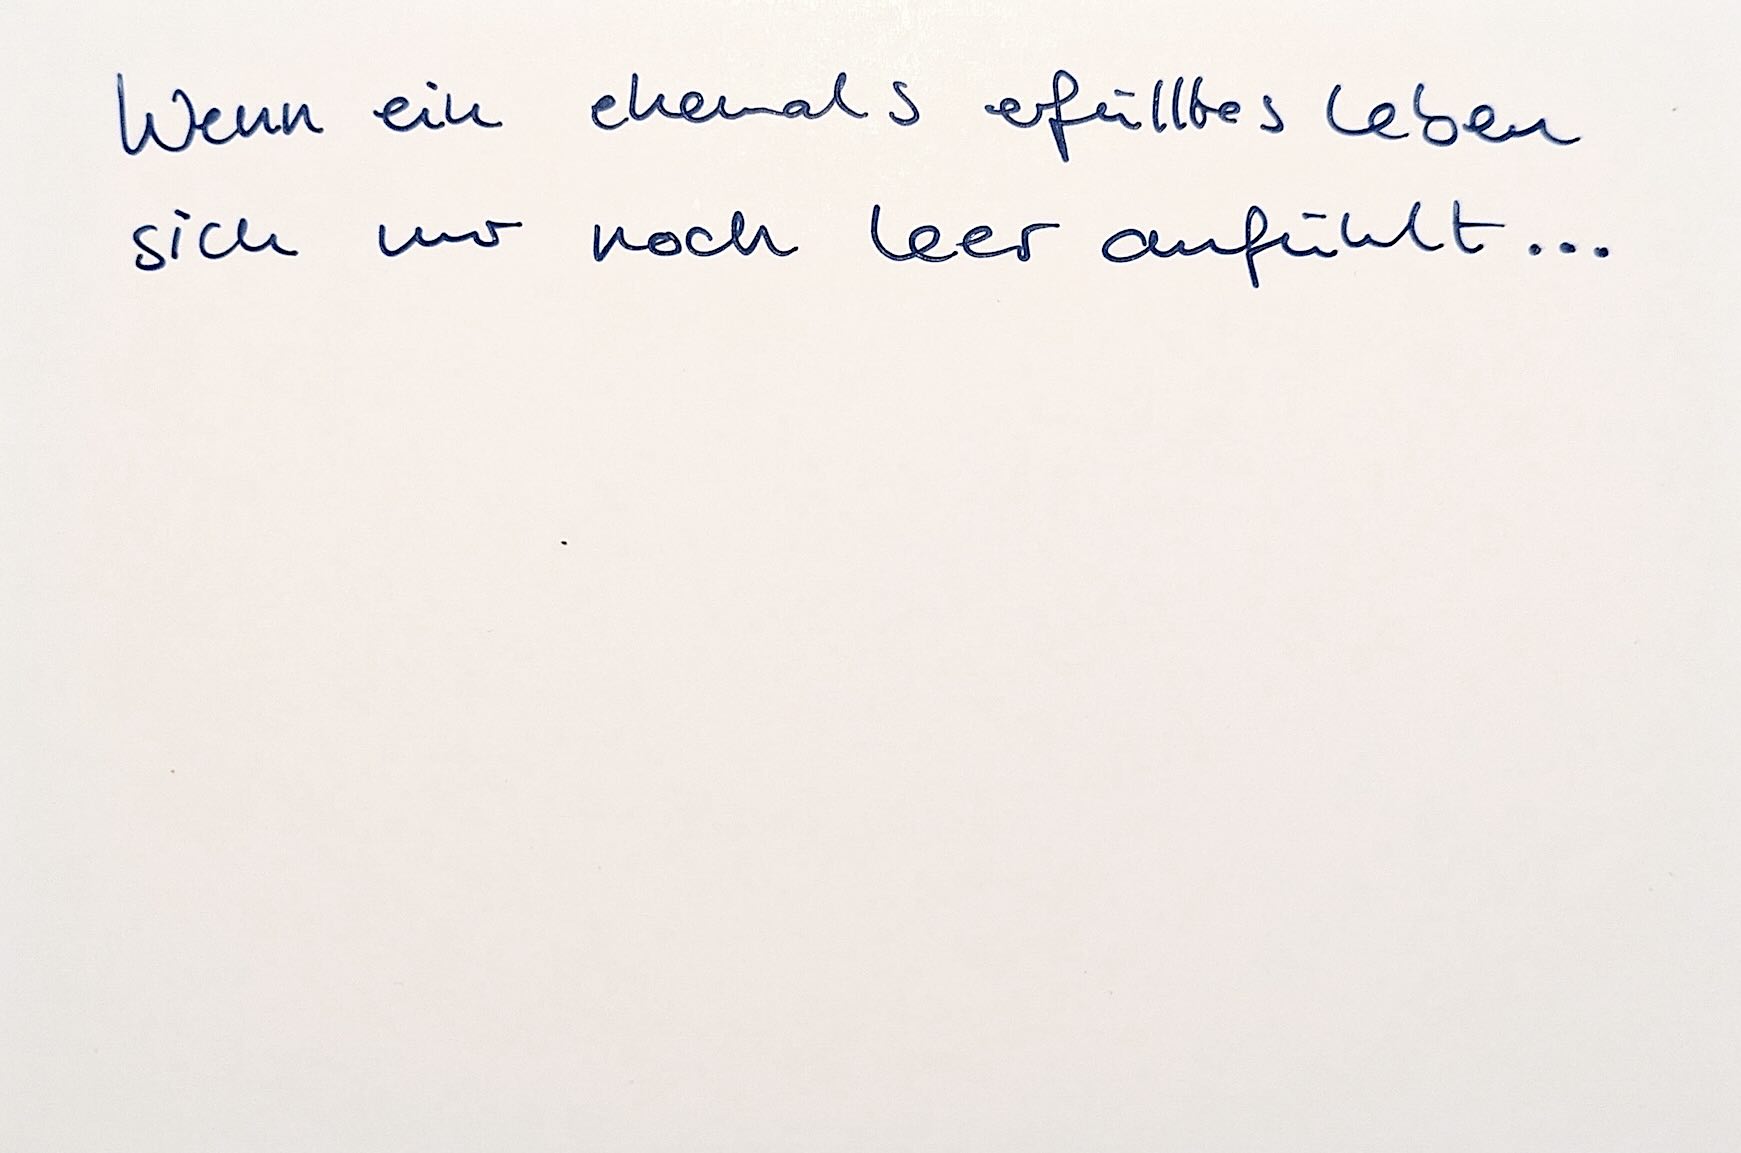 Wenn ein ehemals erfülltes Leben
sich nur noch leer anfühlt...